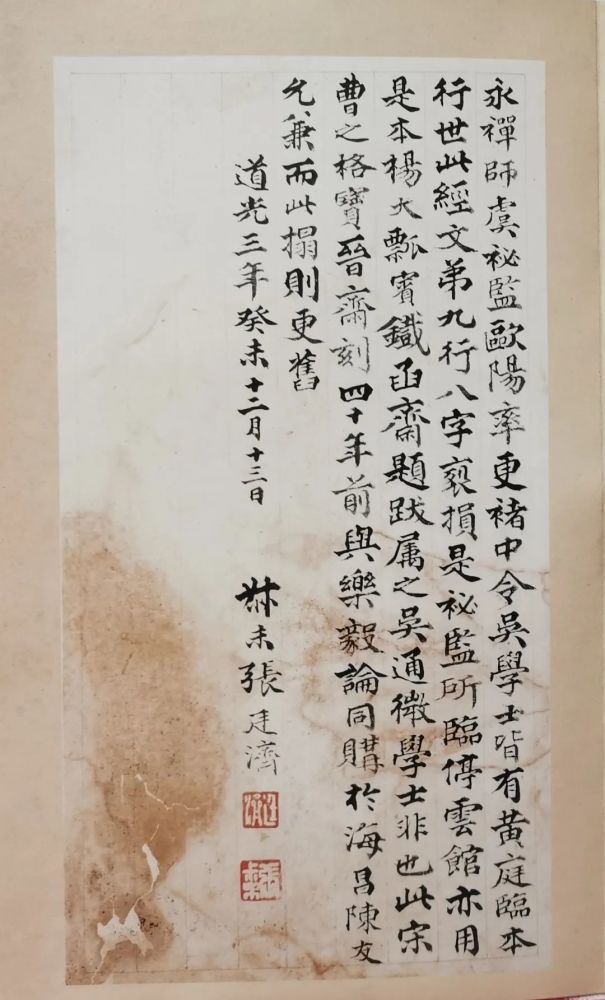 永禪師虞祕監歐陽率更褚中令吳學士皆有黃庭臨本
行世此經文弟九行八字褻損是祕監所臨停雲館亦用
是本楊大瓢賓鐵函齋題跋属之吳通微學士非也此宋
曹之格寶晉齋刻四十年前與樂毅論同購於海昌陳友
允兼而此搨則更舊
道光三年癸未十二月十三日 叔未張廷濟
廷濟
張叔未